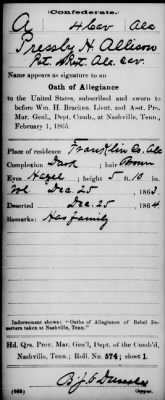 (Confederate.)
A 4 Cav Ala
Pressly H. Allison
Pvt. Ala. Cav.
Name appears as signature to an
Oath of Allegiance
to the United States, subscribed and sworn to
before Wm. H. Bracken, Lieut. and Asst. Pro.
Mar. Genl., Dept. Cumb., at Nashville, Tenn.,
February 1, 1865.
Place of residence Franklin Co. Ala
Complexion Dark ; hair Brown
Eyes Hazel ; height 5 ft. 10 in.
Vol. Dec. 25, 1863.
Deserted Dec. 25, 1864
Remarks: Has family
Indorsement shows: "Oaths of Allegiance of Rebel De-
serters taken at Nashville, Tenn."
Hd. Qrs. Pro. Mar. Gen'l, Dept. of the Cumb'd,
Nashville, Tenn.; Roll. No. 574; sheet 1
Copyist.